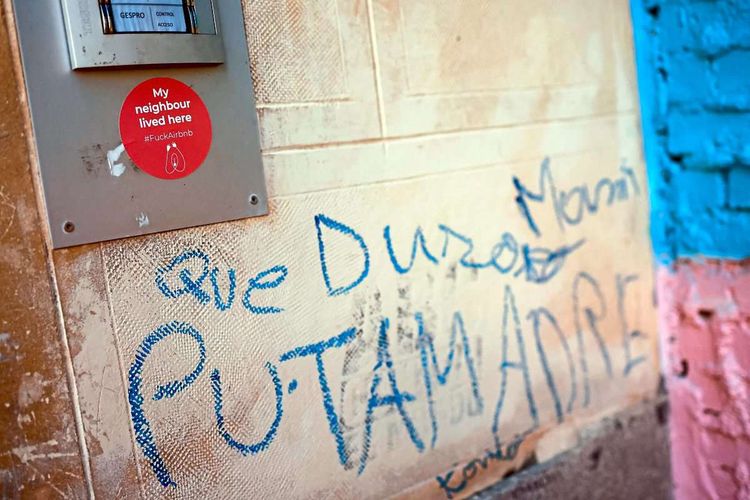 GESPRO
CONTROL
ACCESO
My
neighbour
lived here
#FuckAirbnb
QUE DURO
PUTAMADRE